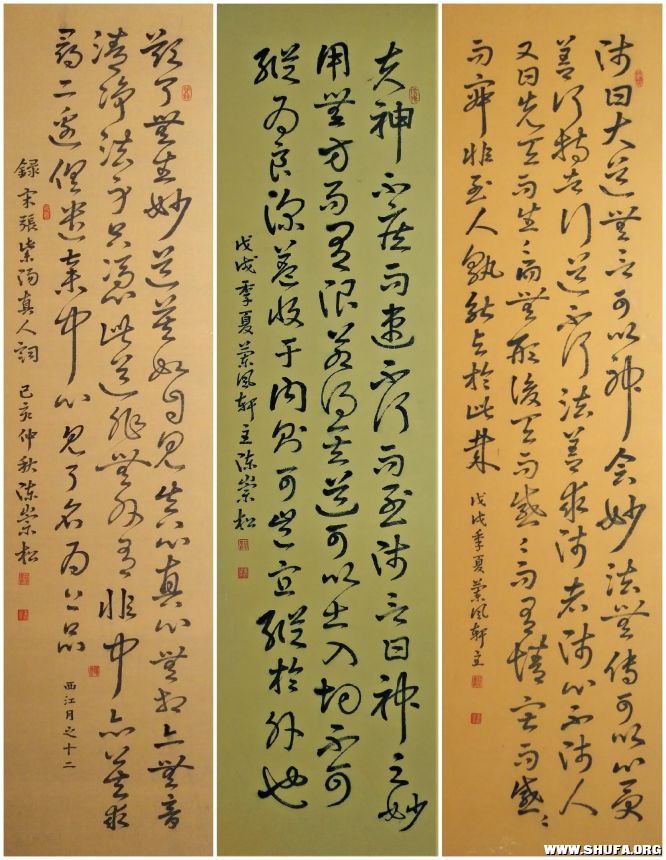 师曰大道無言可以神会妙法無傳可以心
善行持者行道不行法善求师者师心不师人
又曰先天而生〻而無形後天而感〻而有情寂而感〻
而寂非至人孰能与於此哉
戊戌季夏蘭風軒主
夫神不疾而速不行而至师言曰神之妙
用無方而有限若得其道可以出入切不可
縱為良深蓋收于内則可豈宜縱於外也
戊戌季夏蘭風軒主陈崇松
欲了無生妙道莫如自見真心真心無相亦無音
清淨法身只恁此道非無非有非中亦莫求
尋二邊俱遣棄中心見了名為上品
西江月之十二
錄宋張紫陽真人詞 己亥仲秋陈崇松
WWW.SHUFA.ORG